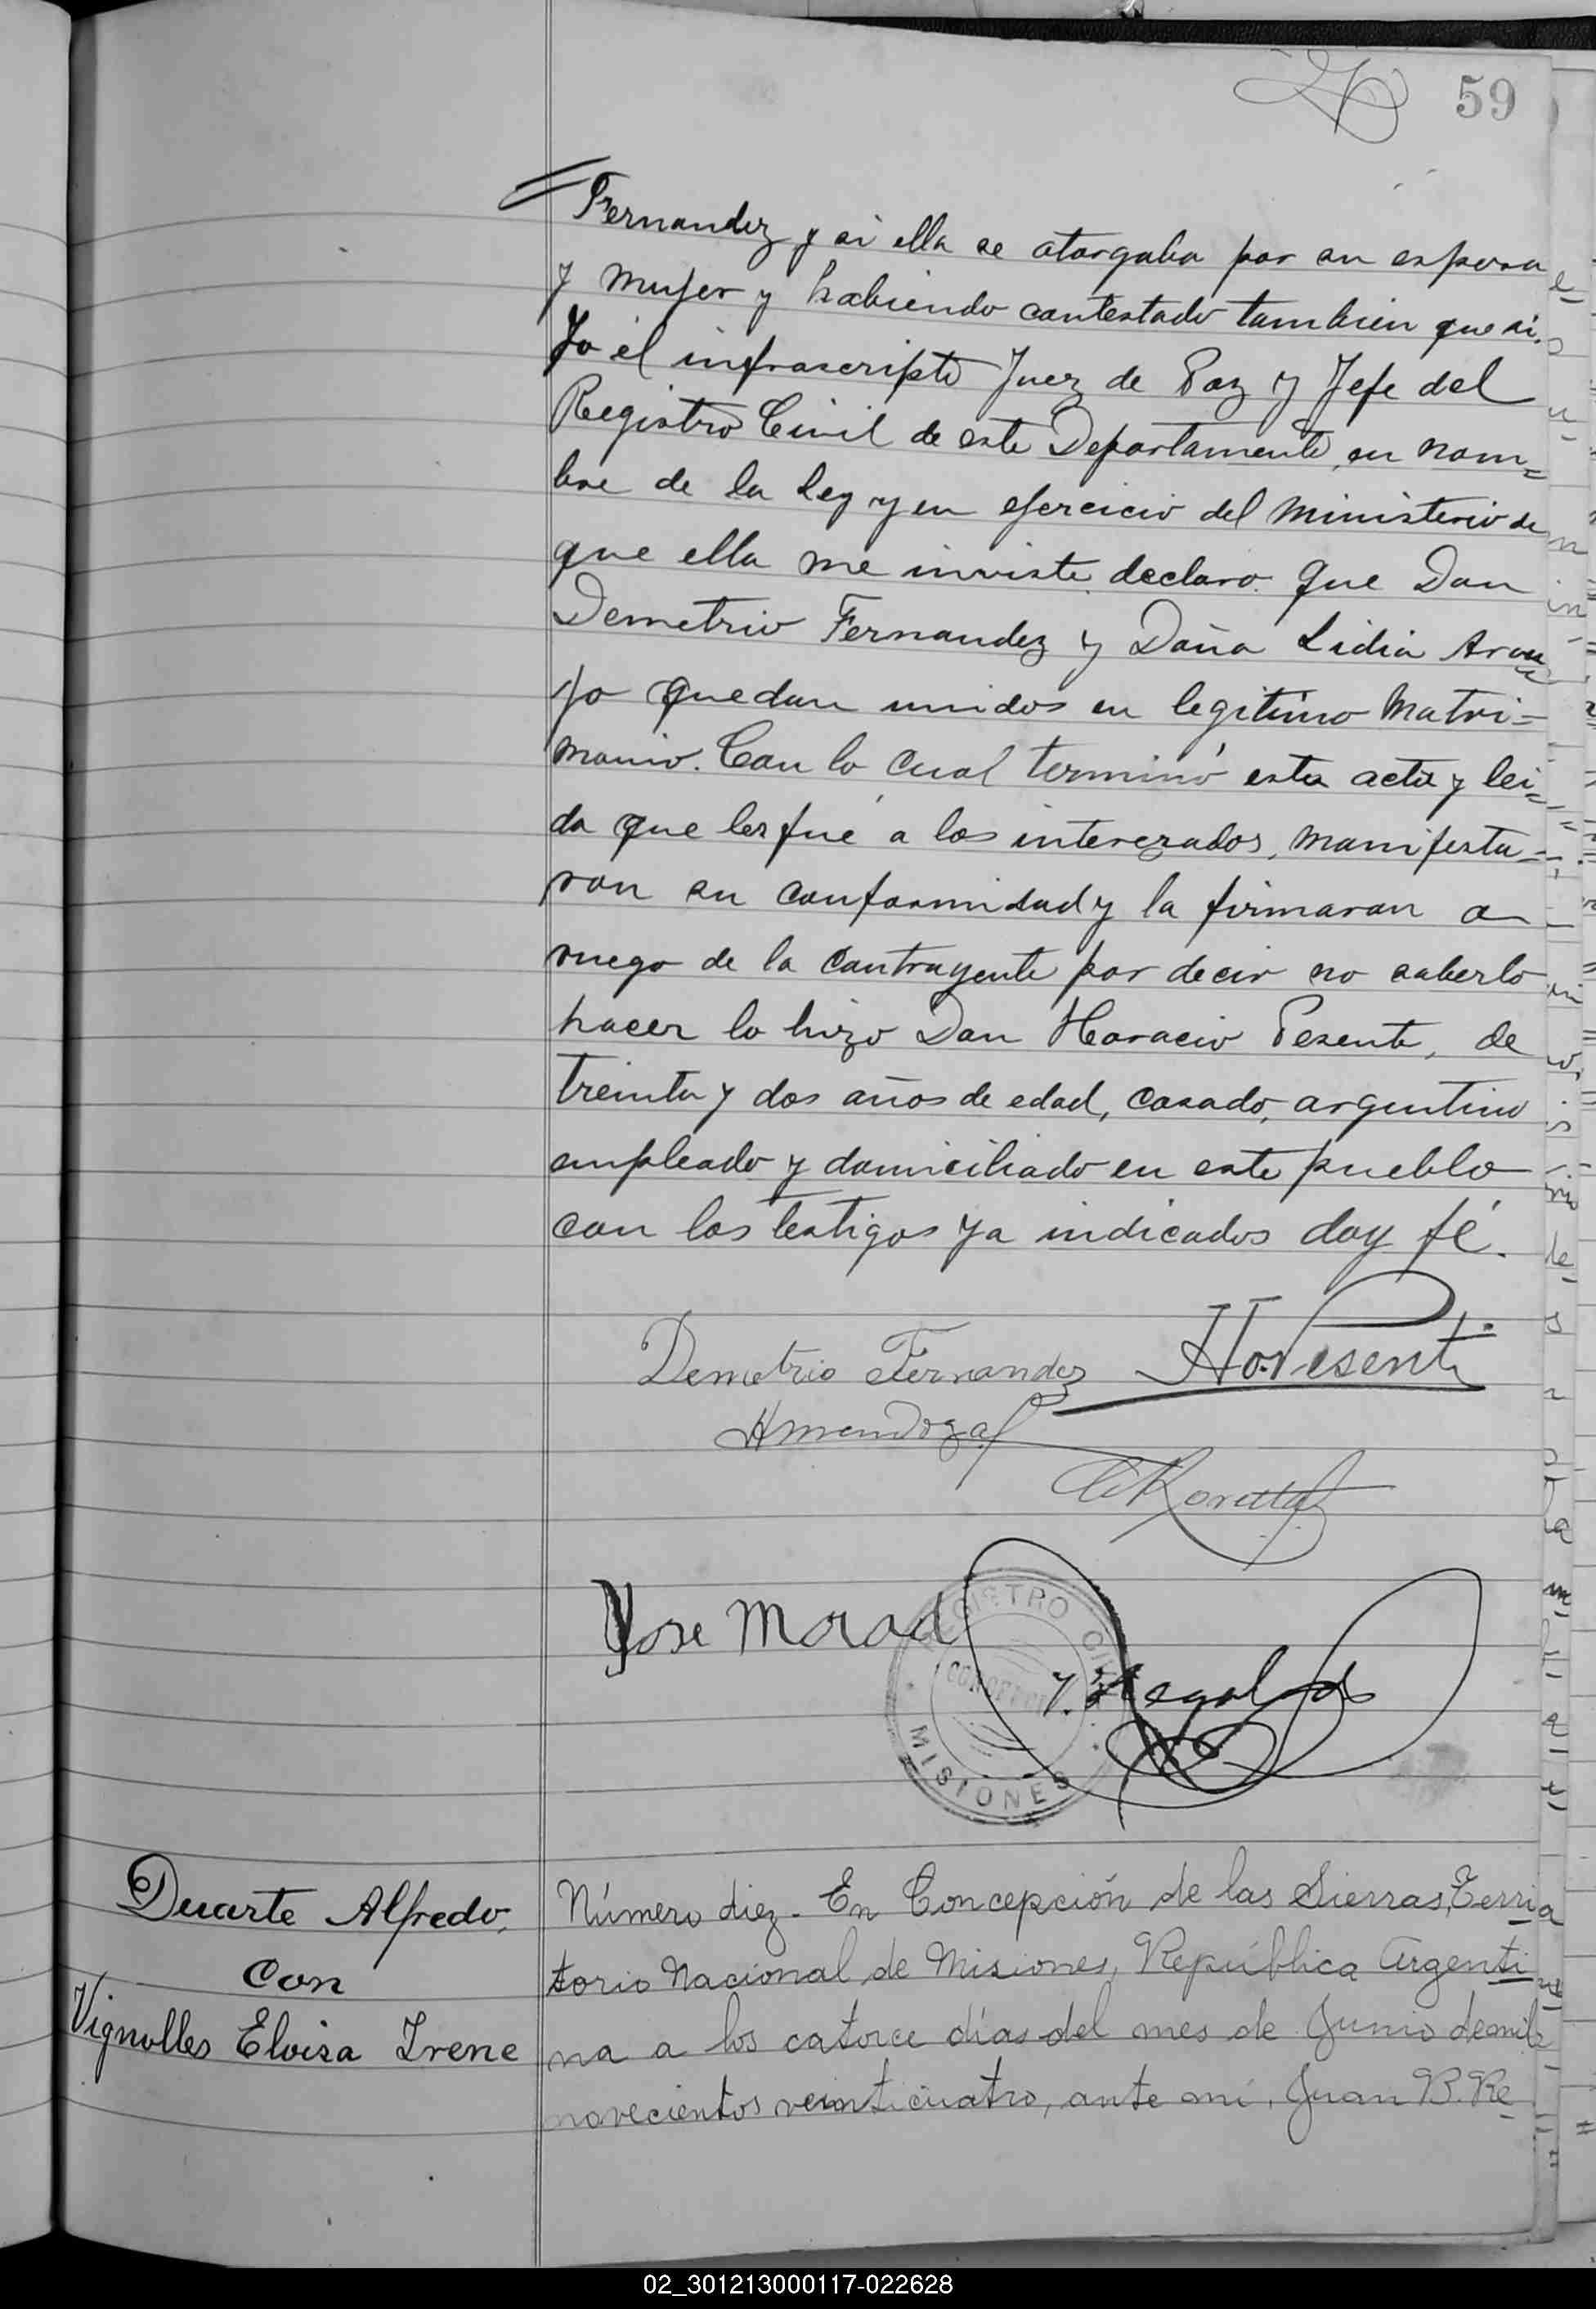 59
Fernandez y si ella se otorgaba por su esposa
y mujer y habiendo contestado tambien que si.
Yo el infrascripto Juez de Paz y Jefe del
Registro Civil de este Departamento, en nom=
bre de la Ley y en ejercicio del Ministerio de
que ella me inviste, declaro. Que Don
Demetrio Fernandez y Doña Lidia Arau
jo quedan unidos en legitimo Matri=
monio. Con lo cual terminó esta acta y lei=
da que les fué a los interezados, manifesta=
ron su conformidad y la firmaron a
ruego de la contrayente por decir no saberlo
hacer lo hizo Don Horacio Pesente, de
treinta y dos años de edad, casado, argentino
empleado y domiciliado en este pueblo
con los testigos ya indicados doy fé.
Demetrio Fernandez Ho. Pesenti
HMendoza
Jose Morad
REGISTRO CIVIL
MISIONES
Duarte Alfredo,
con
Vignolles Eloisa Irene
Número diez. En Concepción de las Sierras, Terri
torio Nacional de Misiones, República Argenti
na a los catorce días del mes de Junio de mil
novecientos veinticuatro, ante mí, Juan B. Re
02_301213000117-022628